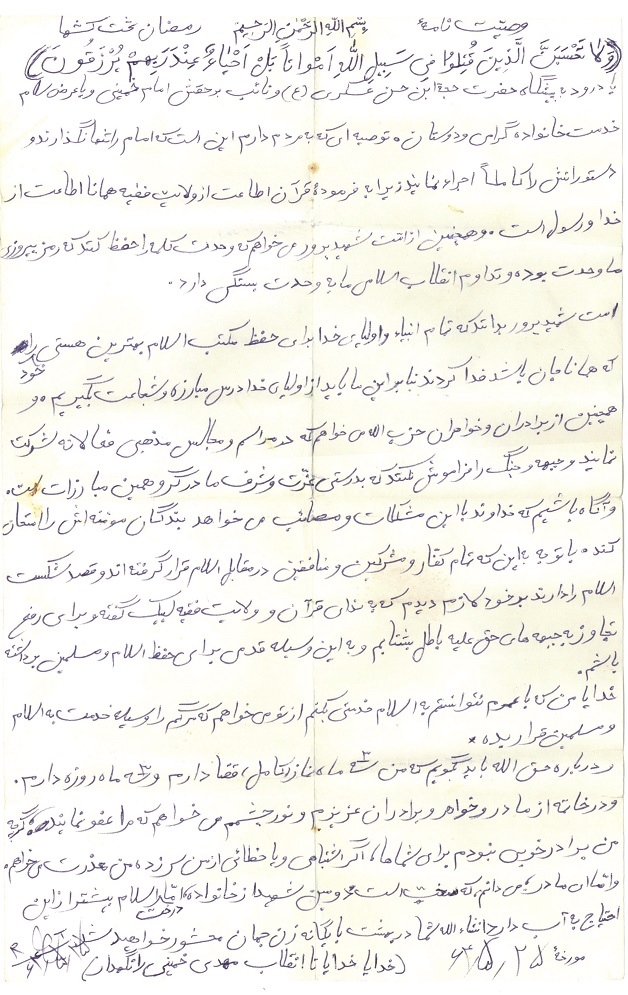 وصیت نامهٔ بسم الله الرحمن الرحیم رمضان تخت کشها
(وَلا تَحْسَبَنَّ الَّذِینَ قُتِلُوا فی سَبیلِ اللهِ اَمْواتاً بَلْ اَحْیاءٌ عِنْدَ رَبِهِمْ یُرْزَقُونَ)
با درود به پیشگاه حضرت حجة ابن حسن عسکری (ع) و نائب برحقش امام خمینی و با عرض سلام
خدمت خانواده گرامی و دوستان. توصیه ای که به مردم دارم این است که امام را تنها نگذارند و
دستوراتش را کاملاً اجراء نمایند زیرا به فرمودهٔ قرآن اطاعت از ولایت فقیه همانا اطاعت از
خدا و رسول است. و همچنین از امت شهید پرور می خواهم که وحدت کلمه را حفظ کنند که رمز پیروزی
ما وحدت بوده و تداوم انقلاب اسلامی ما به وحدت بستگی دارد.
امت شهید پرور بدانند که تمام انبیاء و اولیای خدا برای حفظ مکتب اسلام بهترین هستی خود را
که همانا جان باشد فدا کردند بنابراین ما باید از اولیای خدا درس مبارزه و شجاعت بگیریم. و
همچنین از برادران و خواهران حزب الله می خواهم که در مراسم و مجالس مذهبی فعالانه شرکت
نمایند و جبهه و جنگ را فراموش نکنند که بدرستی عزت و شرف ما در گرو همین مبارزات است.
و آگاه باشیم که خداوند با این مشکلات و مصائب می خواهد بندگان مومنه اش را امتحان
کند. با توجه به این که تمام کفار و مشرکین و منافقین در مقابل اسلام قرار گرفته اند و قصد شکست
اسلام را دارند بر خود لازم دیدم که به ندای قرآن و ولایت فقیه لبیک گفته و برای رفع
تجاوز به جبهه های حق علیه باطل بشتابم و به این وسیله قدمی برای حفظ اسلام و مسلمین برداشته
باشم.
خدایا من که با عمرم نتوانستم به اسلام خدمتی بکنم از تو می خواهم که مرگم را وسیله خدمت به اسلام
و مسلمین قرار بده
درباره حق الله باید بگویم که من ماه نماز کامل قضا دارم و ۳ ماه روزه دارم.
و در خاتمه از مادر و خواهر و برادران عزیزم و نور چشمم می خواهم که مرا عفو نمایند گرچه
من برادر خوبی نبودم برای شماها، اگر اشتباهی و یا خطائی از من سر زده من معذرت می خواهم.
و اما ای مادر، می دانم که سخت است دومین شهید از خانواده اما درخت اسلام بیشتر از این
احتیاج به آب دارد انشاء الله شما در بهشت با یگانه زن جهان محشور خواهید شد
(خدایا خدایا تا انقلاب مهدی خمینی را نگهدار)
مورخهٔ ۲۵ / ۵ / ۶۴